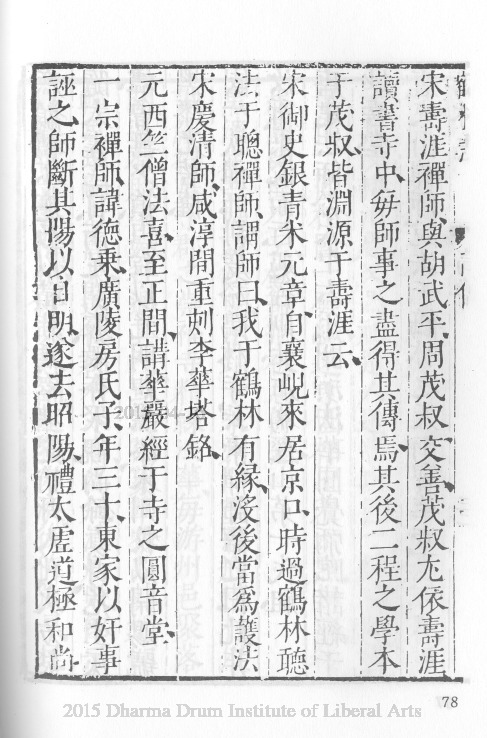 宋壽涯禪師、與胡武平、周茂叔交善、茂叔尤依壽涯
讀書寺中、每師事之盡得其傳焉、其後二程之學本
于茂叔、皆淵源于壽涯云、
宋御史銀青米元章、自襄峴來居京口、時過鶴林聽
法于聰禪師、謂師曰、我于鶴林有緣、沒後當為護法
宋慶清師、咸淳間重刻李華塔銘、
元西竺僧法喜、至正間、講華嚴經于寺之圓音堂、
一宗禪師、諱德乘、廣陵房氏子、年三十、東家以奸事
誣之、師斷其陽以自明、遂去昭陽、禮太虛道極和尚
78
2015 Dharma Drum Institute of Liberal Arts